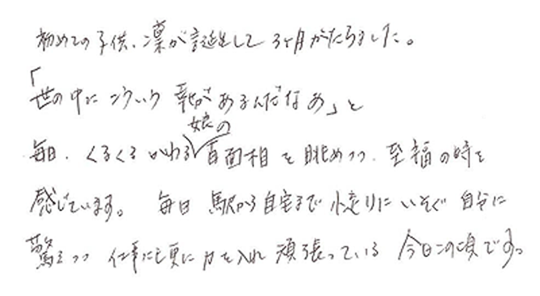 初めての子供、凛が誕生して3ヶ月がたちました。
「世の中にこういう幸せがあるんだなあ」と
毎日、くるくるかわる娘の百面相を眺めつつ、至福の時を
感じています。毎日駅から自宅まで小走りにいそぐ自分に
驚きつつ仕事にも更に力を入れ頑張っている今日この頃です。